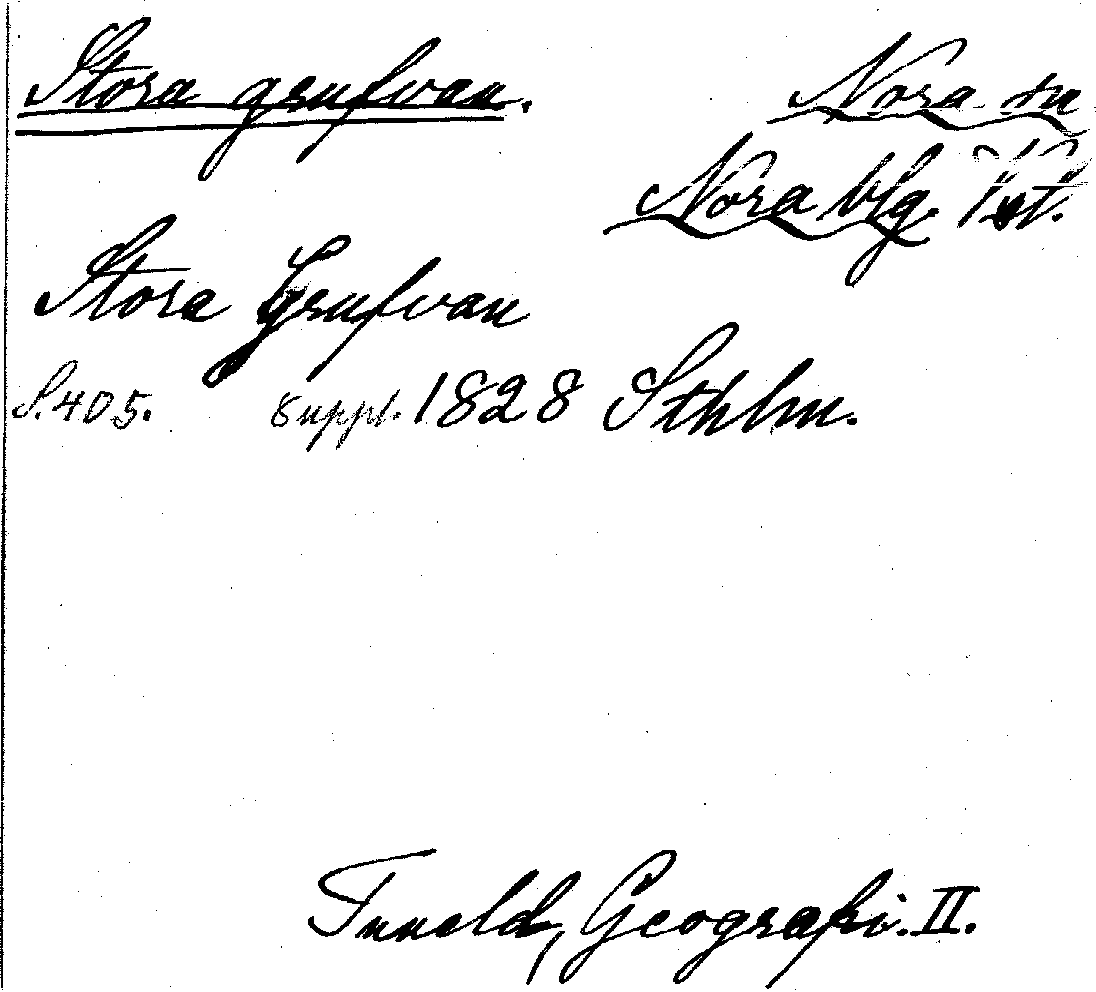 Stora grufvan. Nora sn
Nora blg. Vst.
Stora Grufvan
S. 405. suppl. 1828 Sthlm.
Tuneld, Geografi. II.